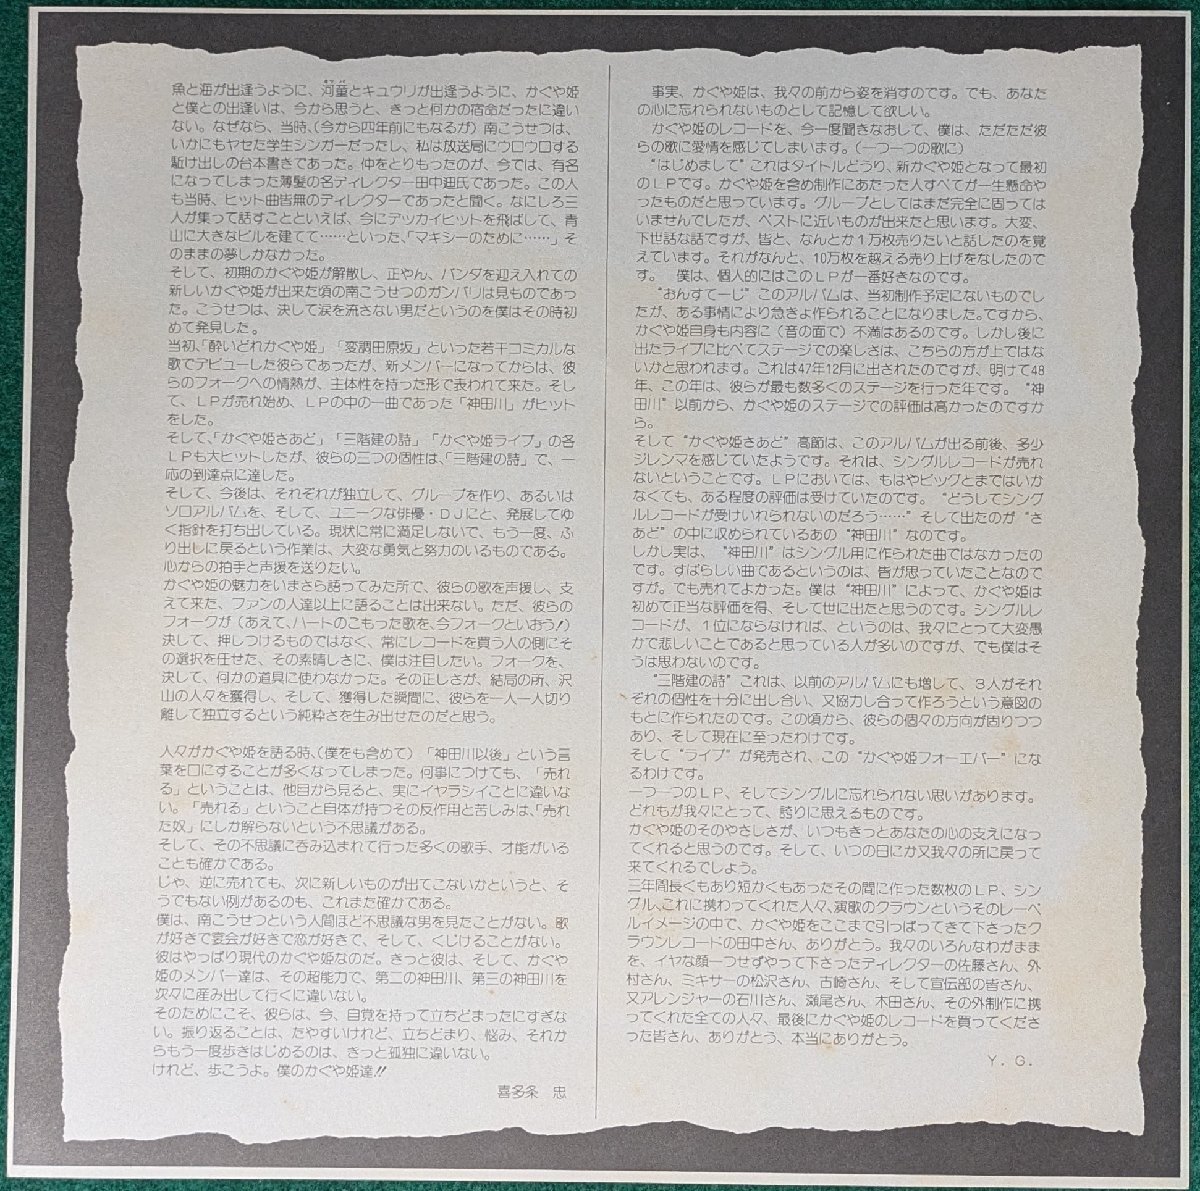 魚と海が出逢うように、河童とキュウリが出逢うように、かぐや姫
と僕との出逢いは、今から思うと、きっと何かの宿命だったに違い
ない。なぜなら、当時、(今から四年前にもなるが)南こうせつは、
いかにもヤセた学生シンガーだったし、私は放送局にウロウロする
駈け出しの台本書きであった。仲をとりもったのが、今では、有名
になってしまった薄髪の名ディレクター田中廸氏であった。この人
も当時、ヒット曲皆無のディレクターであったと聞く。なにしろ三
人が集って話すことといえば、今にデッカイヒットを飛ばして、青
山に大きなビルを建てて……といった、「マキシーのために……」そ
のままの夢しかなかった。
そして、初期のかぐや姫が解散し、正やん、パンダを迎え入れての
新しいかぐや姫が出来た頃の南こうせつのガンバリは見ものであっ
た。こうせつは、決して涙を流さない男だというのを僕はその時初
めて発見した。
当初、「酔いどれかぐや姫」「変調田原坂」といった若干コミカルな
歌でデビューした彼らであったが、新メンバーになってからは、彼
らのフォークへの情熱が、主体性を持った形で表われて来た。そし
て、LPが売れ始め、LPの中の一曲であった「神田川」がヒット
をした。
そして、「かぐや姫さあど」「三階建の詩」「かぐや姫ライブ」の各
LPも大ヒットしたが、彼らの三つの個性は、「三階建の詩」で、一
応の到達点に達した。
そして、今後は、それぞれが独立して、グループを作り、あるいは
ソロアルバムを、そして、ユニークな俳優・DJにと、発展してゆ
く指針を打ち出している。現状に常に満足しないで、もう一度、ふ
り出しに戻るという作業は、大変な勇気と努力のいるものである。
心からの拍手と声援を送りたい。
かぐや姫の魅力をいまさら語ってみた所で、彼らの歌を声援し、支
えて来た、ファンの人達以上に語ることは出来ない。ただ、彼らの
フォークが(あえて、ハートのこもった歌を、今フォークといおう!)
決して、押しつけるものではなく、常にレコードを買う人の側にそ
の選択を任せた、その素晴しさに、僕は注目したい。フォークを、
決して、何かの道具に使わなかった。その正しさが、結局の所、沢
山の人々を獲得し、そして、獲得した瞬間に、彼らを一人一人切り
離して独立するという純粋さを生み出せたのだと思う。
人々がかぐや姫を語る時、(僕をも含めて)「神田川以後」という言
葉を口にすることが多くなってしまった。何事につけても、「売れ
る」ということは、他目から見ると、実にイヤラシイことに違いな
い。「売れる」ということ自体が持つその反作用と苦しみは、「売れ
た奴」にしか解らないという不思議がある。
そして、その不思議に呑み込まれて行った多くの歌手、才能がいる
ことも確かである。
じゃ、逆に売れても、次に新しいものが出てこないかというと、そ
うでもない例があるのも、これまた確かである。
僕は、南こうせつという人間ほど不思議な男を見たことがない。歌
が好きで宴会が好きで恋が好きで、そして、くじけることがない。
彼はやっぱり現代のかぐや姫なのだ。きっと彼は、そして、かぐや
姫のメンバー達は、その超能力で、第二の神田川、第三の神田川を
次々に産み出して行くに違いない。
そのためにこそ、彼らは、今、自覚を持って立ちどまったにすぎな
い。振り返ることは、たやすいけれど、立ちどまり、悩み、それか
らもう一度歩きはじめるのは、きっと孤独に違いない。
けれど、歩こうよ。僕のかぐや姫達!!
喜多条 忠
事実、かぐや姫は、我々の前から姿を消すのです。でも、あなた
の心に忘れられないものとして記憶して欲しい。
かぐや姫のレコードを、今一度聞きなおして、僕は、ただただ彼
らの歌に愛情を感じてしまいます。(一つ一つの歌に)
“はじめまして”これはタイトルどうり、新かぐや姫となって最初
のLPです。かぐや姫を含め制作にあたった人すべてが一生懸命や
ったものだと思っています。グループとしてはまだ完全に固っては
いませんでしたが、ベストに近いものが出来たと思います。大変、
下世話な話ですが、皆と、なんとか1万枚売りたいと話したのを覚
えています。それがなんと、10万枚を越える売り上げをなしたので
す。 僕は、個人的にはこのLPが一番好きなのです。
“おんすてーじ”このアルバムは、当初制作予定にないものでし
たが、ある事情により急きょ作られることになりました。ですから、
かぐや姫自身も内容に(音の面で)不満はあるのです。しかし後に
出たライブに比べてステージでの楽しさは、こちらの方が上ではな
いかと思われます。これは47年12月に出されたのですが、明けて48
年、この年は、彼らが最も数多くのステージを行った年です。“神
田川”以前から、かぐや姫のステージでの評価は高かったのですか
ら。
そして“かぐや姫さあど”高節は、このアルバムが出る前後、多少
ジレンマを感じていたようです。それは、シングルレコードが売れ
ないということです。LPにおいては、もはやビッグとまではいか
なくても、ある程度の評価は受けていたのです。“どうしてシング
ルレコードが受けいれられないのだろう……”そして出たのが“さ
あど”の中に収められているあの“神田川”なのです。
しかし実は、“神田川”はシングル用に作られた曲ではなかったの
です。すばらしい曲であるというのは、皆が思っていたことなので
すが。でも売れてよかった。僕は“神田川”によって、かぐや姫は
初めて正当な評価を得、そして世に出たと思うのです。シングルレ
コードが、1位にならなければ、というのは、我々にとって大変愚
かで悲しいことであると思っている人が多いのですが、でも僕はそ
うは思わないのです。
“三階建の詩”これは、以前のアルバムにも増して、3人がそれ
ぞれの個性を十分に出し合い、又協力し合って作ろうという意図の
もとに作られたのです。この頃から、彼らの個々の方向が固りつつ
あり、そして現在に至ったわけです。
そして“ライブ”が発売され、この“かぐや姫フォーエバー”にな
るわけです。
一つ一つのLP、そしてシングルに忘れられない思いがあります。
どれもが我々にとって、誇りに思えるものです。
かぐや姫のそのやさしさが、いつもきっとあなたの心の支えになっ
てくれると思うのです。そして、いつの日にか又我々の所に戻って
来てくれるでしょう。
三年間長くもあり短かくもあったその間に作った数枚のLP、シン
グル、これに携わってくれた人々、演歌のクラウンというそのレーベ
ルイメージの中で、かぐや姫をここまで引っぱってきて下さったク
ラウンレコードの田中さん、ありがとう。我々のいろんなわがまま
を、イヤな顔一つせずやって下さったディレクターの佐藤さん、外
村さん、ミキサーの松沢さん、古崎さん、そして宣伝部の皆さん、
又アレンジャーの石川さん、瀬尾さん、木田さん、その外制作に携
ってくれた全ての人々、最後にかぐや姫のレコードを買ってくださ
った皆さん、ありがとう、本当にありがとう。
Y.G.